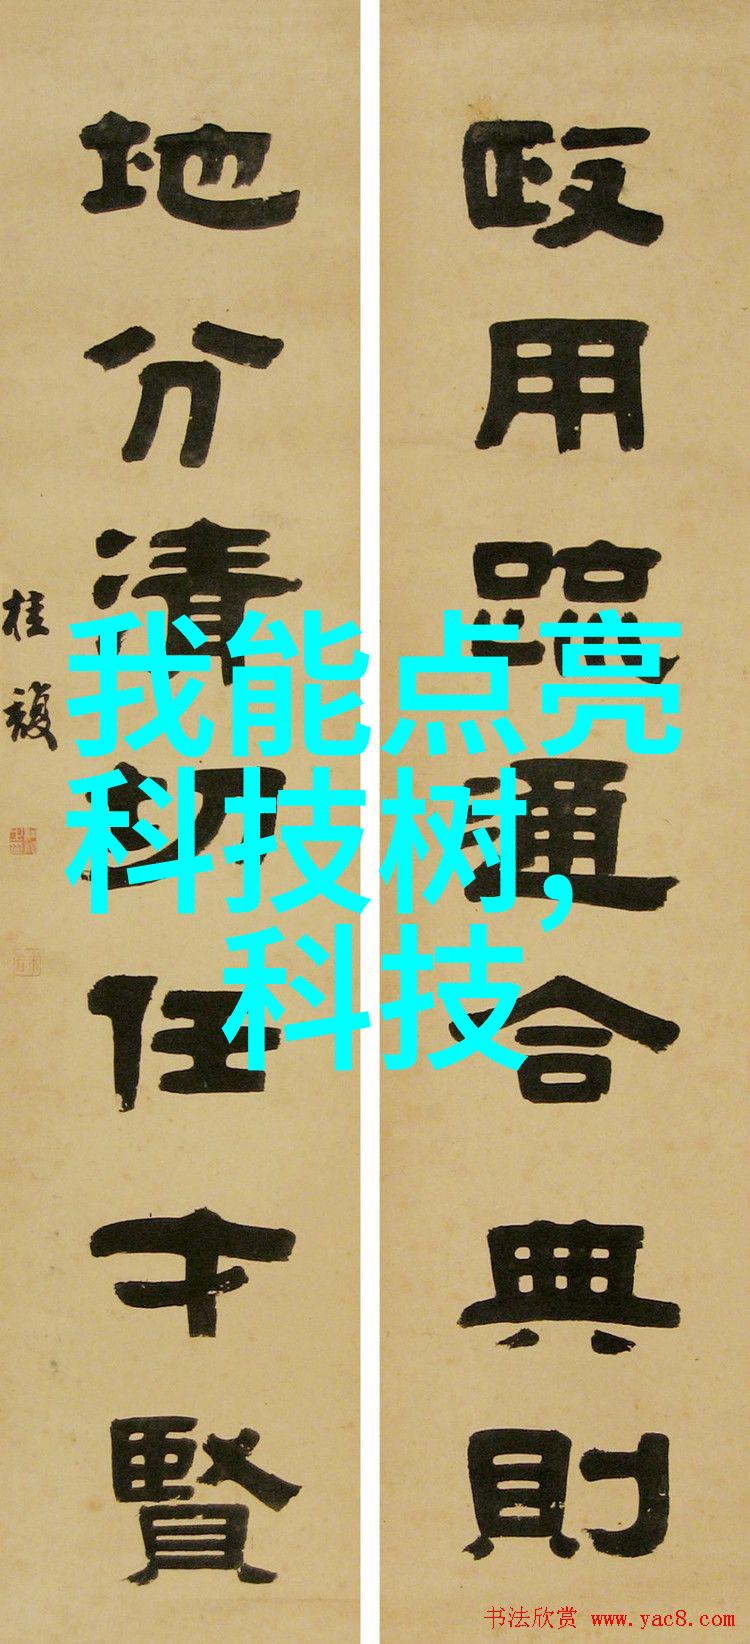 政用疏通合典則
地分清切任才賢
桂馥
我能点亮
科技树，
科技
书法欣赏 www.yac8.com